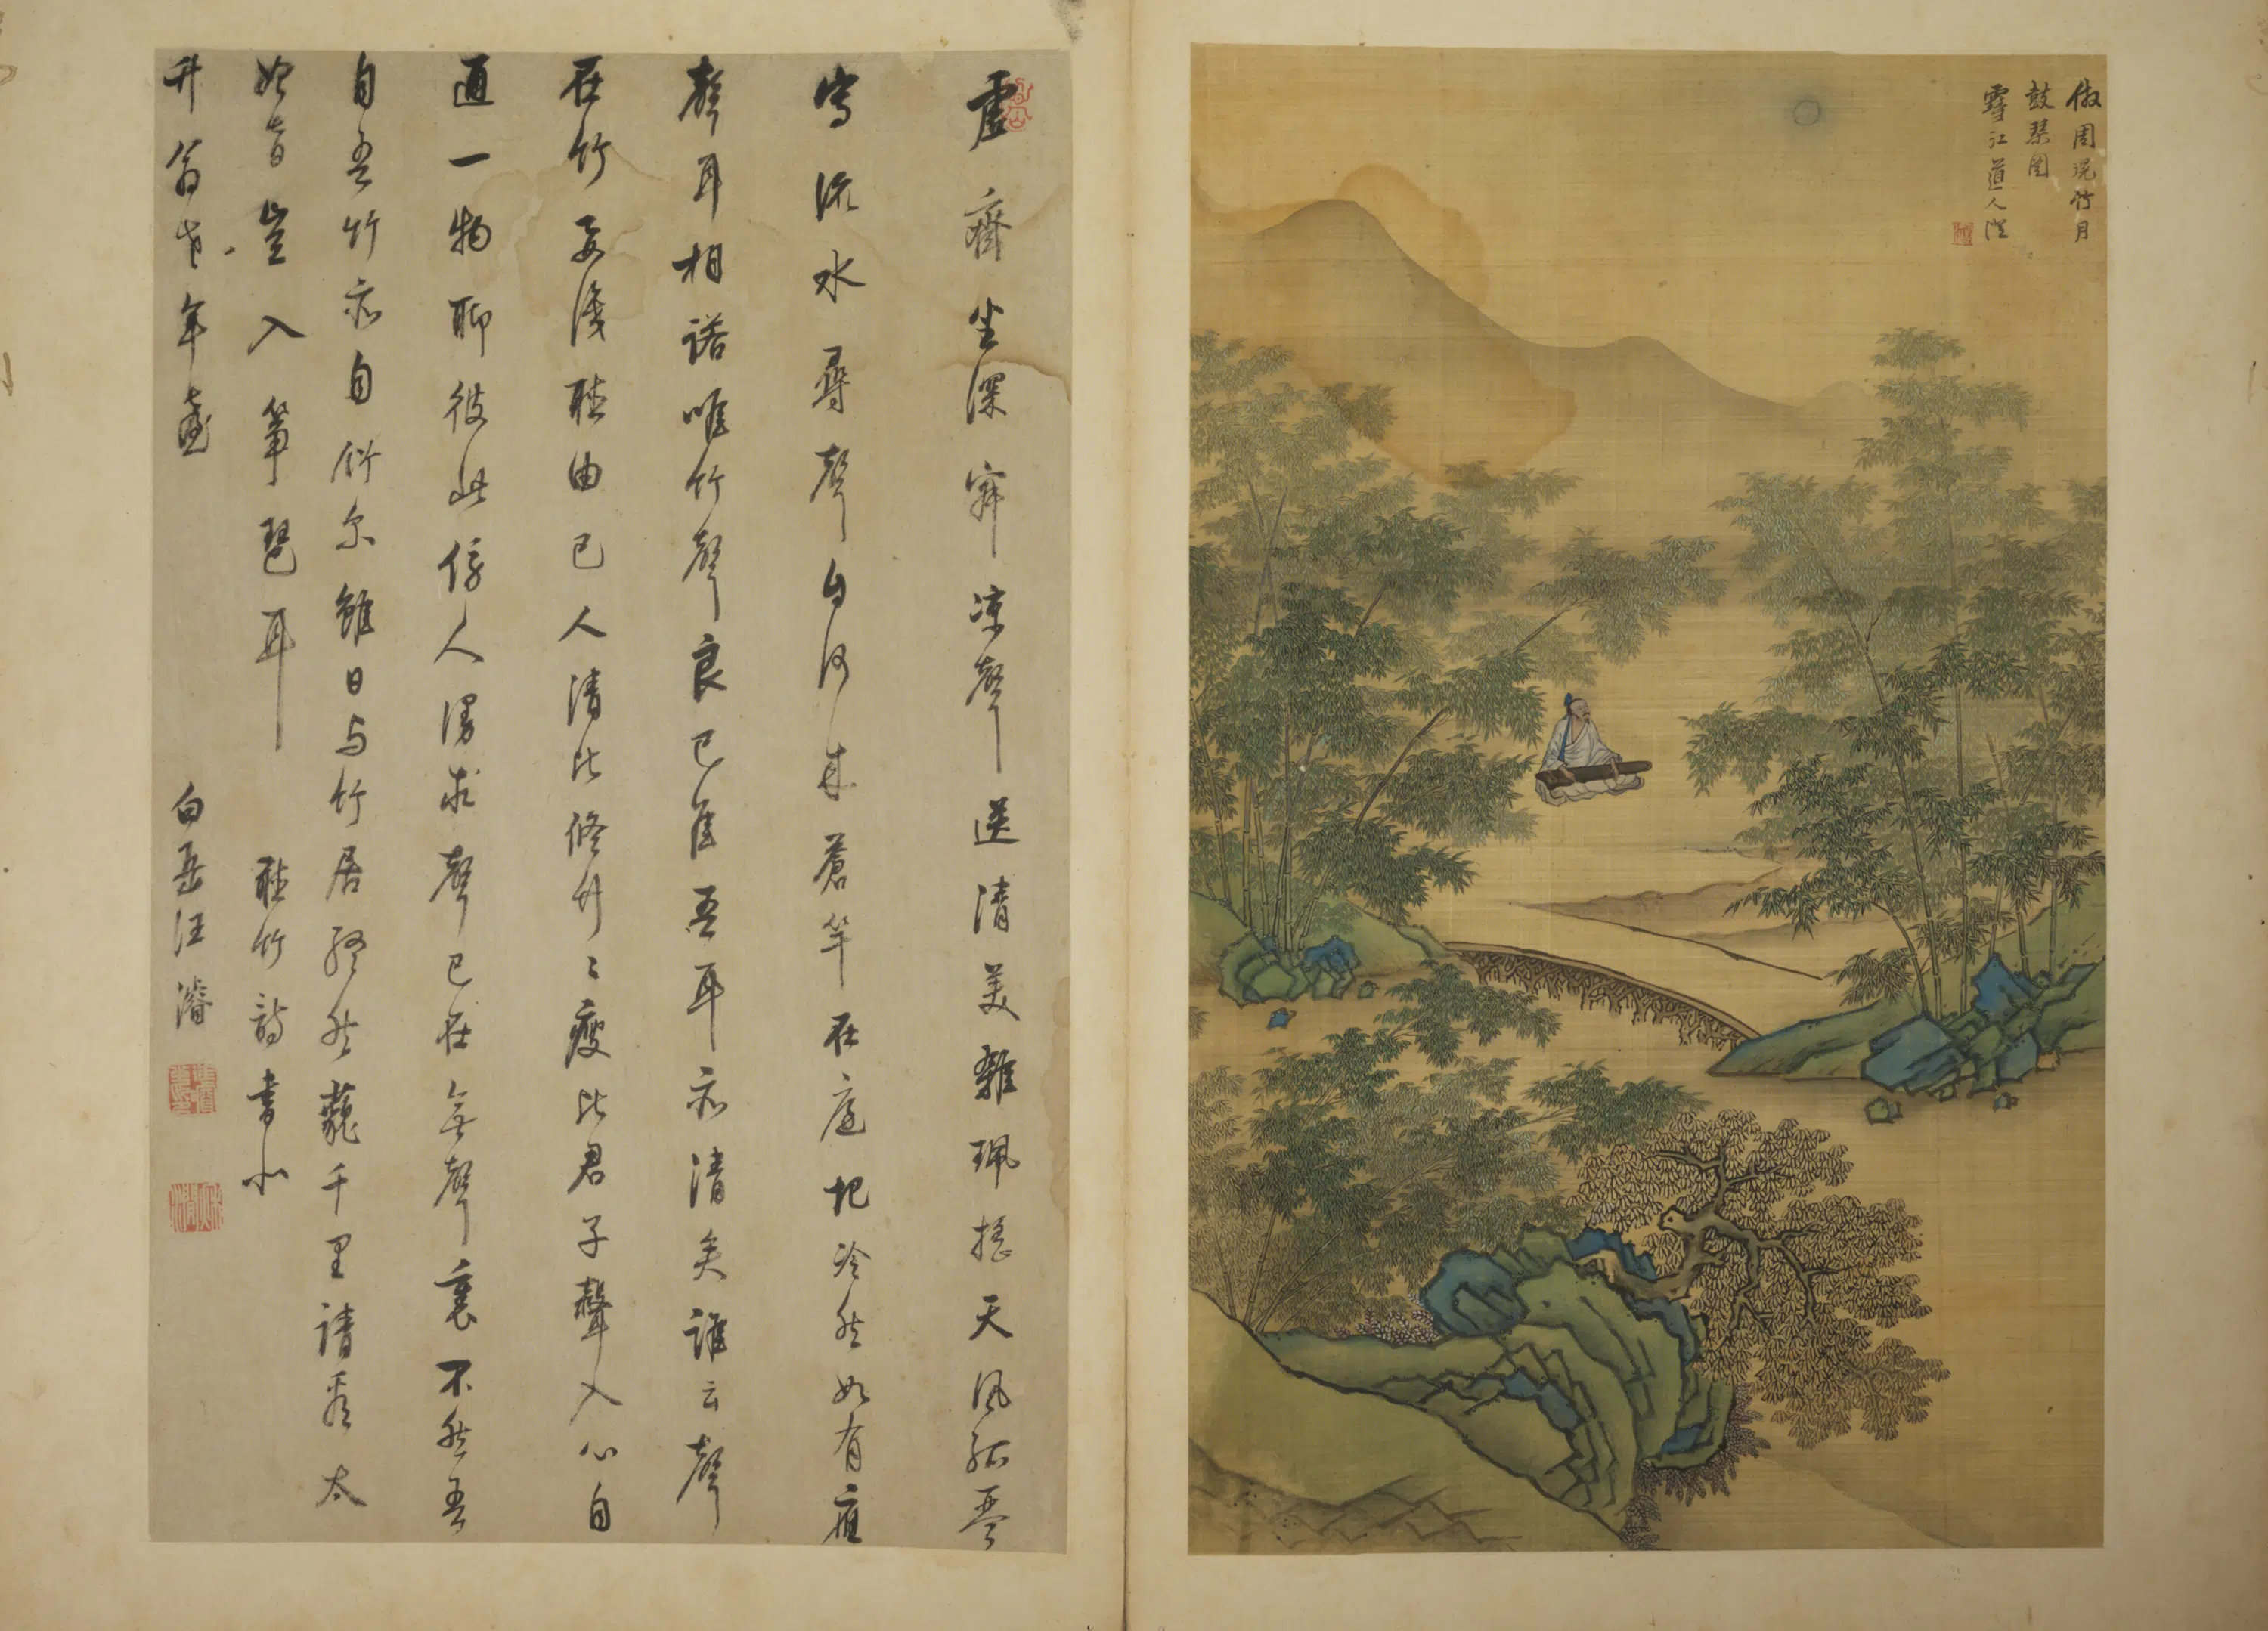 倣周況竹月
鼓琴圖
雪江道人
虛齋坐深寂涼聲送清美雜珮搖天風孤琴
寫流水尋聲自何來蒼竿在庭圮泠然如有應
聲耳相諾唯竹聲良已雅吾耳亦清矣誰云聲
在竹要識聽由己人清比修竹々瘦比君子聲入心自
通一物聊彼此傍人漫求聲已在無聲裏不然吾
自吾竹亦自竹尔雖日与竹居終然藐千里請看太
始音豈入箏琶耳 聽竹詩書似
升翁老年臺 白岳汪濬